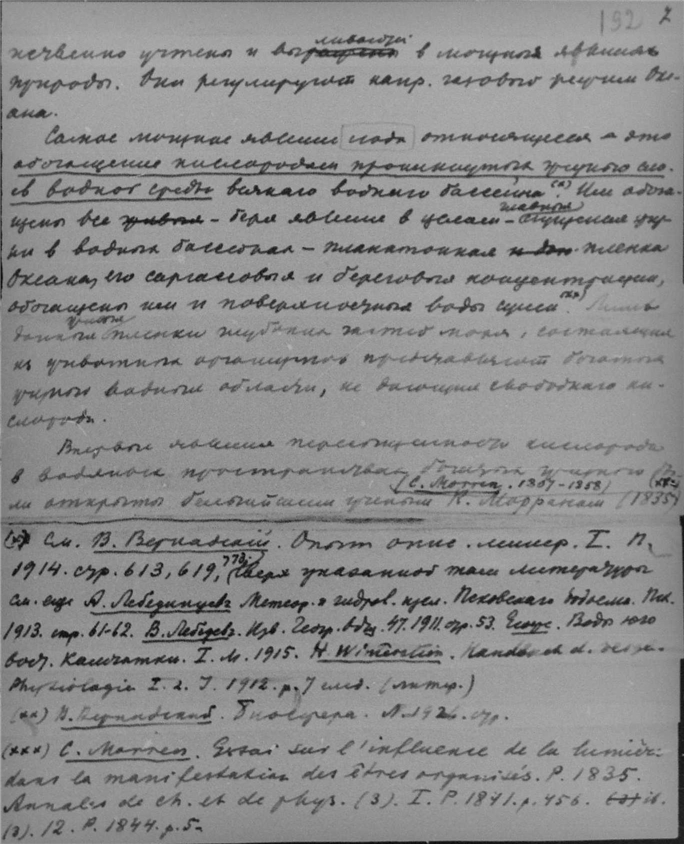 192 7
учтены и выливаются в мощныя явления
природы. Они регулируют напр. газовый режим Оке-
ана.
Самое мощное явление сюда относящееся – это
обогащение кислородом проникнутых жизнью сло-
ев водной среды всякаго воднаго бассейна (x). Им обога-
щены все – беря явление в целом – главныя сгущения жиз-
ни в водных бассейнах – планктонная пленка
Океана, его саргассовыя и береговыя концентрации,
обогащены им и поверхностныя воды суши (xx). Лишь
донныя пленки глубоких частей моря, состоящия
из животных организмов представляют богатыя
жизнью водныя области, не дающия свободнаго ки-
слорода.
Впервые явления пересыщенности кислорода
в водяных пространствах богатых жизнью бы-
ли открыты бельгийским ученым К. Морраном (1835)
(C. Morren. 1807-1858) (xxx)
(x) См. В. Вернадский. Опыт опис. минер. I. П.
1914. стр. 613, 619, 778. Сверх указанной там литературы
см. еще А. Лебединцев Метеор. и гидров. Псковскаго водоема. Пск.
1913. стр. 61-62. В. Лебедев. Изв. Геогр. Общ. 47. 1911. стр. 53. Воды юго
вост. Камчатки. I. М. 1915. H. Winterstein. Handbuch d. vergl.
Physiologie I. 2. J. 1912. p. 7 след. (литер.)
(xx) В. Вернадский. Биосфера. Л. 1926. стр.
(xxx) C. Morren. Essai sur l'influence de la lumière
dans la manifestation des êtres organisés. P. 1835.
Annales de ch. et de phys. (3). I. P. 1841. p. 456. ib.
(3). 12. P. 1844. p. 5-